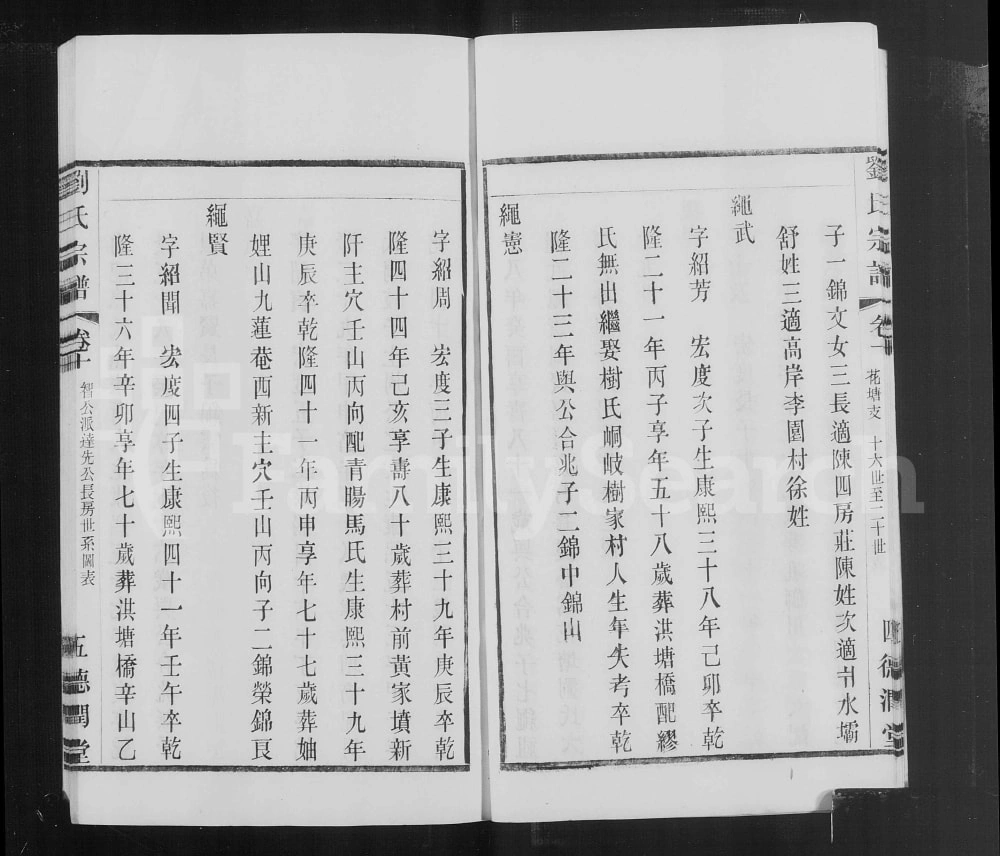 劉氏宗譜
卷十
花塘支
十六世至二十世
四
德潤堂
子一錦文女三長適陳四房莊陳姓次適廾水壩
舒姓三適高岸李園村徐姓
繩武
字紹芳 宏度次子生康熙三十八年己卯卒乾
隆二十一年丙子享年五十八歲葬洪塘橋配繆
氏無出繼娶樹氏峒岐樹家村人生年失考卒乾
隆二十三年與公合兆子二錦中錦山
繩憲
字紹周 宏度三子生康熙三十九年庚辰卒乾
隆四十四年己亥享壽八十歲葬村前黃家墳新
阡主穴壬山丙向配青暘馬氏生康熙三十九年
庚辰卒乾隆四十一年丙申享年七十七歲葬妯
娌山九蓮菴西新主穴壬山丙向子二錦榮錦良
繩賢
字紹聞 宏度四子生康熙四十一年壬午卒乾
隆三十六年辛卯享年七十歲葬洪塘橋辛山乙
劉氏宗譜
卷十
智公派達先公長房世系圖表
五
德潤堂
FamilySearch